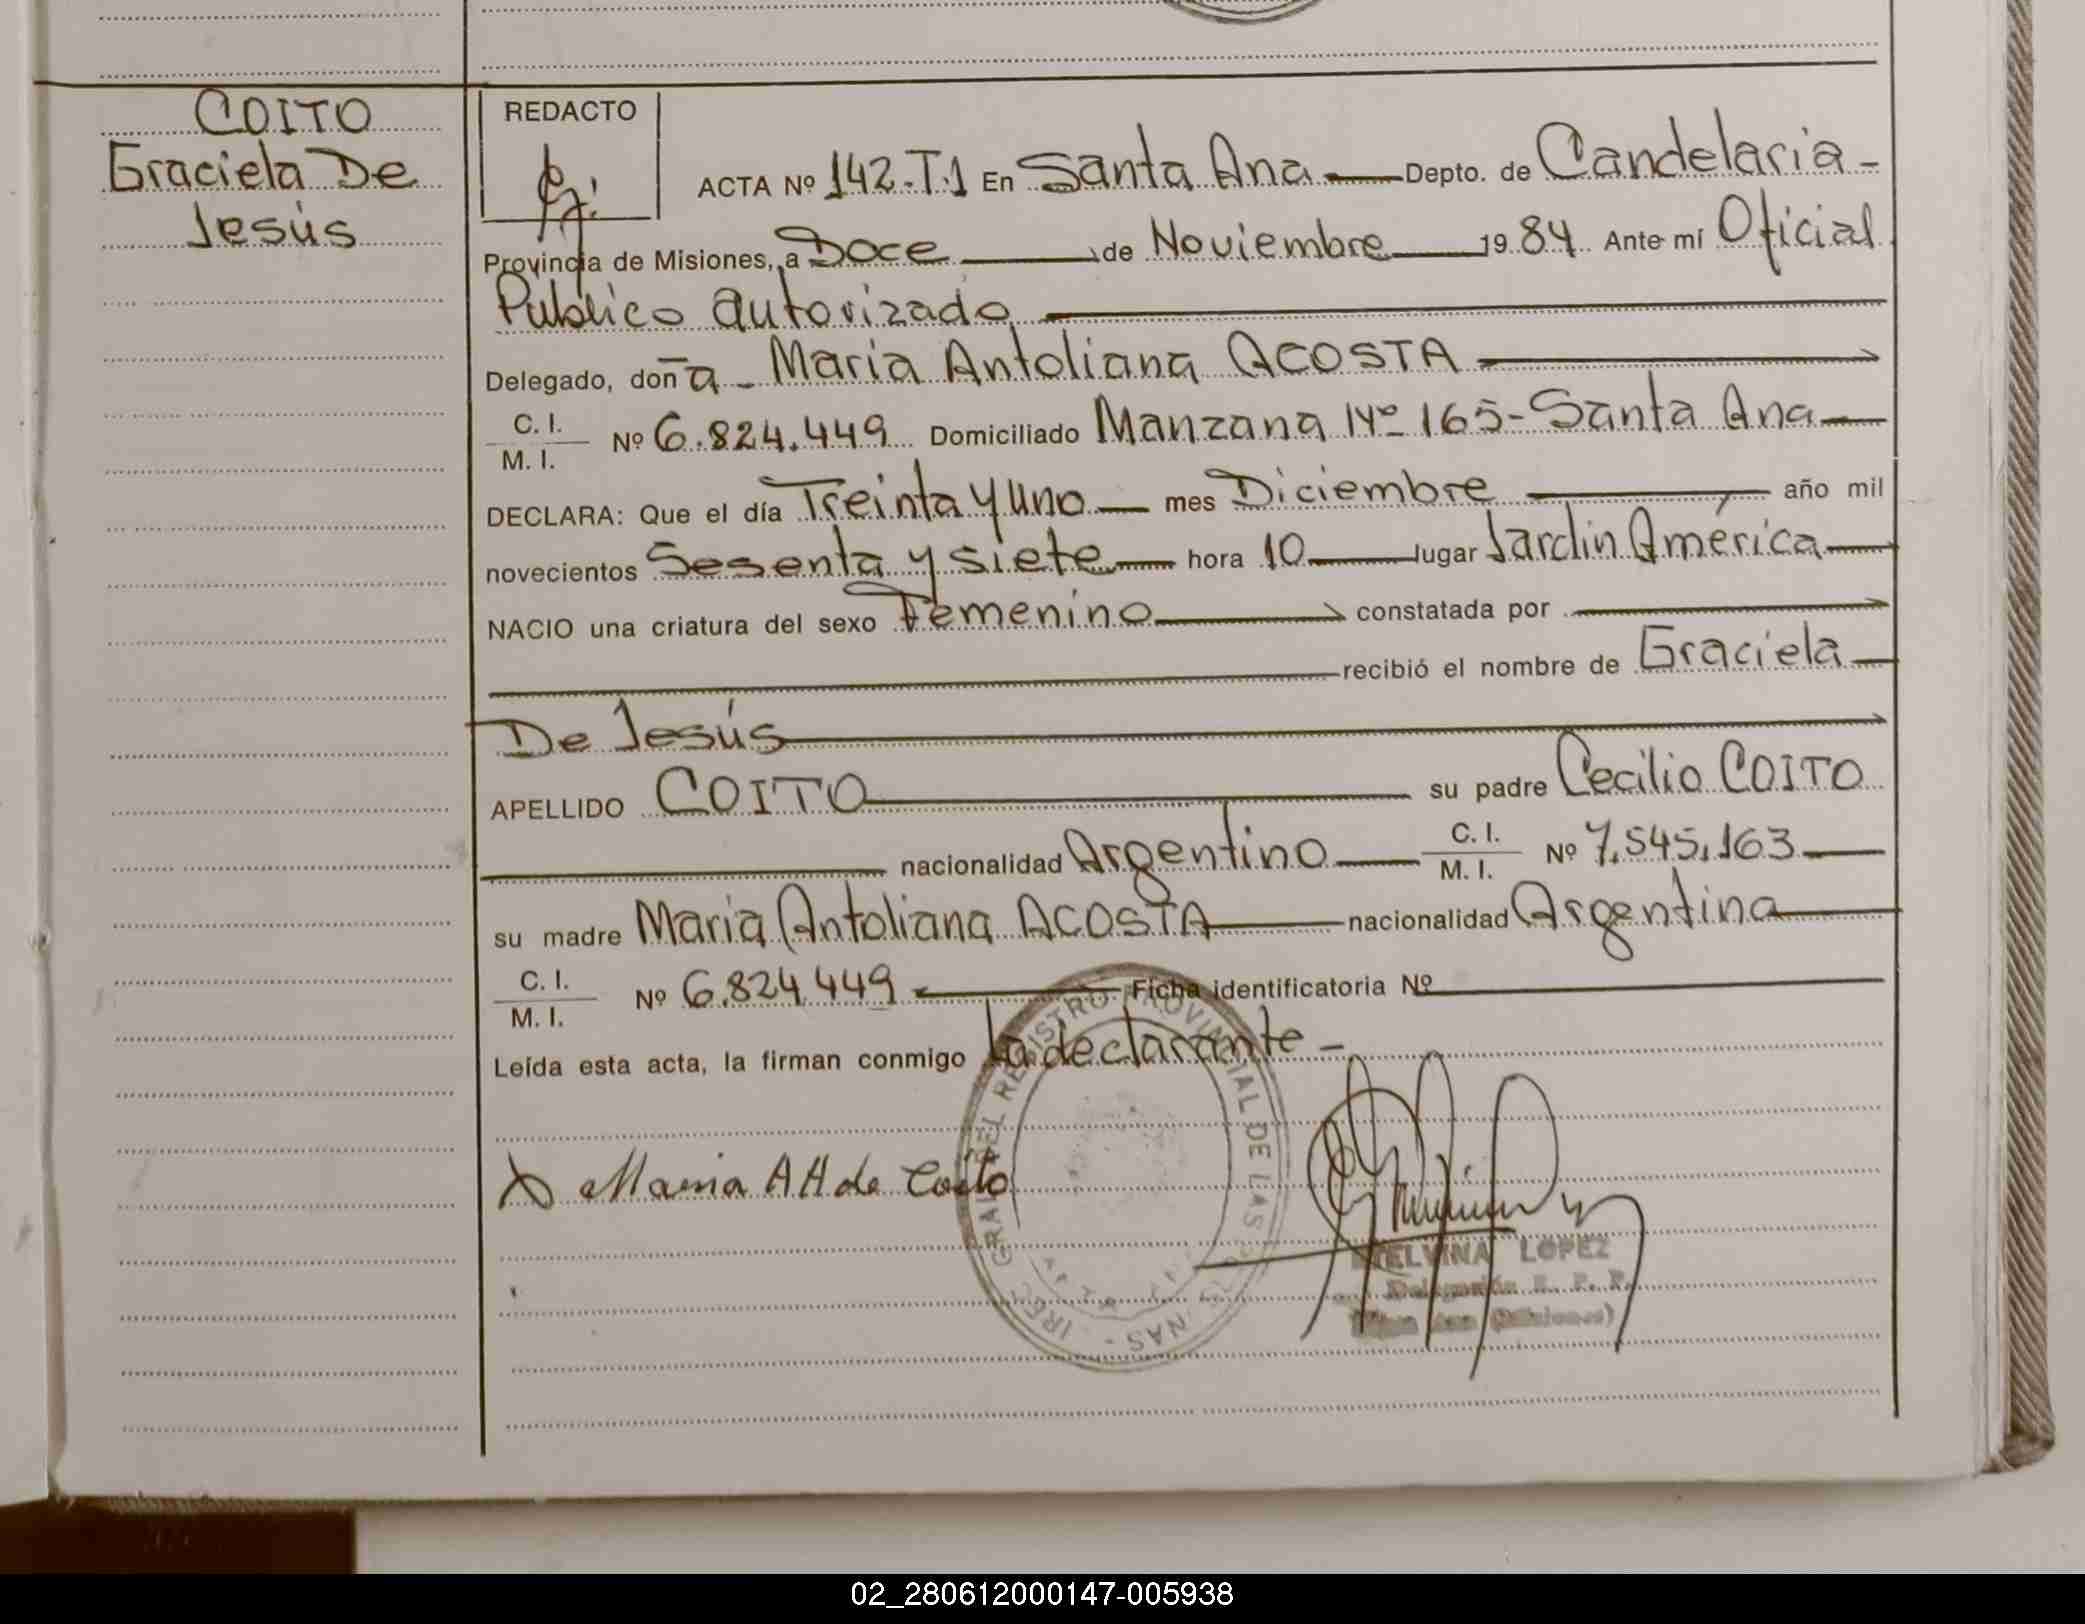 COITO
Graciela De
Jesús
REDACTO
ACTA Nº 142.T.1 En Santa Ana Depto. de Candelaria
Provincia de Misiones, a Doce de Noviembre 19 84 Ante mí Oficial
Publico autorizado
Delegado, doña María Antoliana ACOSTA
C. I.
M. I.
Nº 6.824.449 Domiciliado Manzana Nº 165 - Santa Ana
DECLARA: Que el día Treinta y uno mes Diciembre año mil
novecientos Sesenta y siete hora 10 lugar Jardín América
NACIO una criatura del sexo Femenino constatada por
recibió el nombre de Graciela
De Jesús
APELLIDO COITO su padre Cecilio COITO
nacionalidad Argentino C. I. M. I. Nº 7.545.163
su madre María Antoliana ACOSTA nacionalidad Argentina
C. I.
M. I.
Nº 6.824.449 Ficha identificatoria Nº
Leída esta acta, la firman conmigo la declarante -
Maria A A de Coito
GRAL DEL REGISTRO PROVINCIAL DE LAS
ETELVINA LOPEZ
(Misiones)
02_280612000147-005938